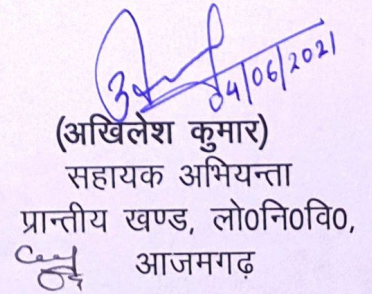 04/06/2021
(अखिलेश कुमार)
सहायक अभियन्ता
प्रान्तीय खण्ड, लो०नि०वि०,
आजमगढ़